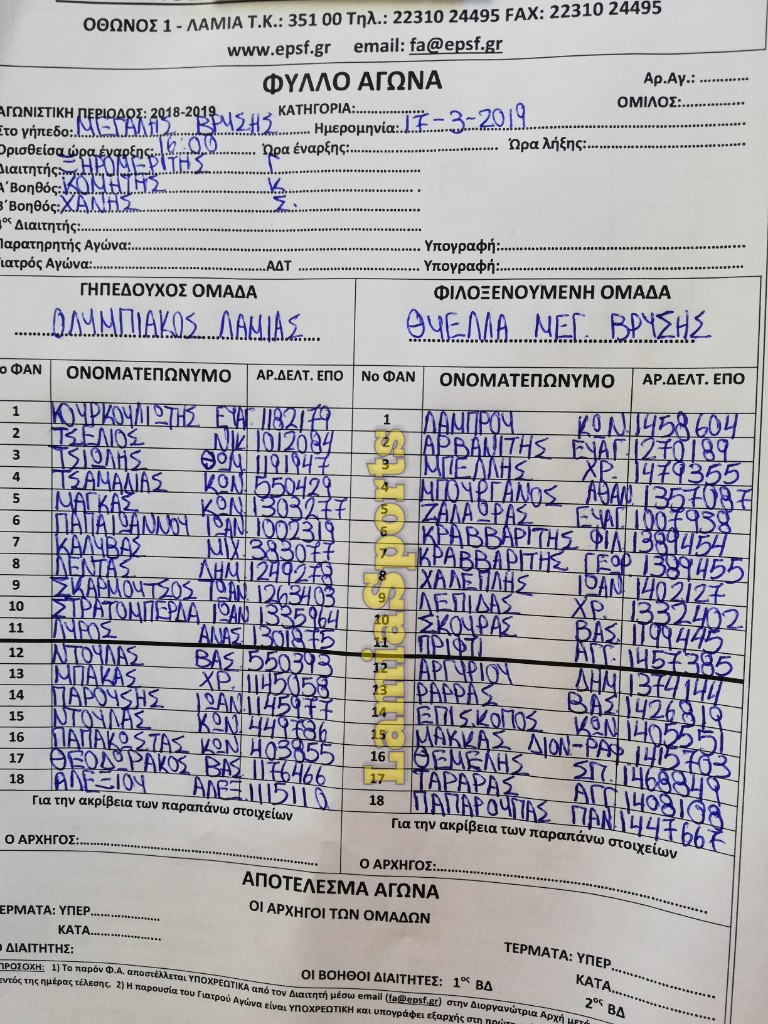 ΟΘΩΝΟΣ 1 - ΛΑΜΙΑ Τ.Κ.: 351 00 Τηλ.: 22310 24495 FAX: 22310 24495
www.epsf.gr email: fa@epsf.gr
ΦΥΛΛΟ ΑΓΩΝΑ
Αρ.Αγ.: ............
ΑΓΩΝΙΣΤΙΚΗ ΠΕΡΙΟΔΟΣ: 2018-2019 ΚΑΤΗΓΟΡΙΑ:.................. ΟΜΙΛΟΣ:...............
Στο γήπεδο: ΜΕΓΑΛΗΣ ΒΡΥΣΗΣ Ημερομηνία: 17-3-2019
Ορισθείσα ώρα έναρξης: 16.00 Ώρα έναρξης: Ώρα λήξης:
Διαιτητής: ΞΗΡΟΜΕΡΙΤΗΣ Γ
Α΄Βοηθός: ΚΟΜΗΤΗΣ Κ
Β΄Βοηθός: ΧΑΝΗΣ Σ.
4ος Διαιτητής:
Παρατηρητής Αγώνα: Υπογραφή:
Γιατρός Αγώνα: ΑΔΤ Υπογραφή:
ΓΗΠΕΔΟΥΧΟΣ ΟΜΑΔΑ
ΟΛΥΜΠΙΑΚΟΣ ΛΑΜΙΑΣ
Νο ΦΑΝ ΟΝΟΜΑΤΕΠΩΝΥΜΟ ΑΡ.ΔΕΛΤ. ΕΠΟ
1 ΚΟΥΡΚΟΥΛΙΩΤΗΣ ΕΥΑΓ 1182179
2 ΤΣΕΛΙΟΣ ΝΙΚ 1012084
3 ΤΣΙΩΛΗΣ ΘΩΜ 1191947
4 ΤΣΑΜΑΔΙΑΣ ΚΩΝ 550429
5 ΜΑΓΚΑΣ ΚΩΝ 1303277
6 ΠΑΠΑΙΩΑΝΝΟΥ ΙΩΑΝ 1002319
7 ΚΑΛΥΒΑΣ ΜΙΧ 383077
8 ΛΕΝΤΑΣ ΔΗΜ 1249278
9 ΣΚΑΡΜΟΥΤΣΟΣ ΙΩΑΝ 1263403
10 ΣΤΡΑΤΟΜΠΕΡΔΑ ΙΩΑΝ 1335964
11 ΛΥΡΟΣ ΑΝΑΣ 1301875
12 ΝΤΟΥΛΑΣ ΒΑΣ 550393
13 ΜΠΑΚΑΣ ΧΡ. 1145058
14 ΠΑΡΟΥΣΗΣ ΙΩΑΝ 1145977
15 ΝΤΟΥΛΑΣ ΚΩΝ 449786
16 ΠΑΠΑΚΩΣΤΑΣ ΚΩΝ 403855
17 ΘΕΟΔΩΡΑΚΟΣ ΒΑΣ 1176466
18 ΑΛΕΞΙΟΥ ΑΛΕΞ 1115110
Για την ακρίβεια των παραπάνω στοιχείων
Ο ΑΡΧΗΓΟΣ:
ΦΙΛΟΞΕΝΟΥΜΕΝΗ ΟΜΑΔΑ
ΘΥΕΛΛΑ ΜΕΓ. ΒΡΥΣΗΣ
Νο ΦΑΝ ΟΝΟΜΑΤΕΠΩΝΥΜΟ ΑΡ.ΔΕΛΤ. ΕΠΟ
1 ΛΑΜΠΡΟΥ ΚΩΝ 1458604
2 ΑΡΒΑΝΙΤΗΣ ΕΥΑΓ 1270189
3 ΜΠΕΛΛΗΣ ΧΡ. 1479355
4 ΜΠΟΥΡΓΑΝΟΣ ΑΘΑΝ 1357087
5 ΖΑΛΑΩΡΑΣ ΕΥΑΓ 1007938
6 ΚΡΑΒΒΑΡΙΤΗΣ ΦΙΛ 1389454
7 ΚΡΑΒΒΑΡΙΤΗΣ ΓΕΩΡ 1389455
8 ΧΑΛΕΠΛΗΣ ΙΩΑΝ 1402127
9 ΛΕΠΙΔΑΣ ΧΡ. 1332402
10 ΣΚΟΥΡΑΣ ΒΑΣ. 1199445
11 ΠΡΙΦΤΙ ΑΓΓ. 1457385
12 ΑΡΓΥΡΙΟΥ ΔΗΜ 1374144
13 ΡΑΡΡΑΣ ΒΑΣ 1426819
14 ΕΠΙΣΚΟΠΟΣ ΚΩΝ 1405551
15 ΜΑΚΚΑΣ ΔΙΟΝ-ΡΑΦ 1415703
16 ΘΕΜΕΛΗΣ ΣΠ. 1468849
17 ΤΑΡΑΡΑΣ ΑΓΓ 1408108
18 ΠΑΠΑΡΟΥΠΑΣ ΠΑΝ 1447667
Για την ακρίβεια των παραπάνω στοιχείων
Ο ΑΡΧΗΓΟΣ:
LamiaSports
ΑΠΟΤΕΛΕΣΜΑ ΑΓΩΝΑ
ΟΙ ΑΡΧΗΓΟΙ ΤΩΝ ΟΜΑΔΩΝ
ΤΕΡΜΑΤΑ: ΥΠΕΡ
ΚΑΤΑ
ΤΕΡΜΑΤΑ: ΥΠΕΡ
ΚΑΤΑ
Ο ΔΙΑΙΤΗΤΗΣ:
ΟΙ ΒΟΗΘΟΙ ΔΙΑΙΤΗΤΕΣ: 1ος ΒΔ 2ος ΒΔ
ΠΡΟΣΟΧΗ: 1) Το παρόν Φ.Α. αποστέλλεται ΥΠΟΧΡΕΩΤΙΚΑ από τον Διαιτητή μέσω email (fa@epsf.gr) στην Διοργανώτρια Αρχή
εντός της ημέρας τέλεσης. 2) Η παρουσία του Γιατρού Αγώνα είναι ΥΠΟΧΡΕΩΤΙΚΗ και υπογράφει εξαρχής στη